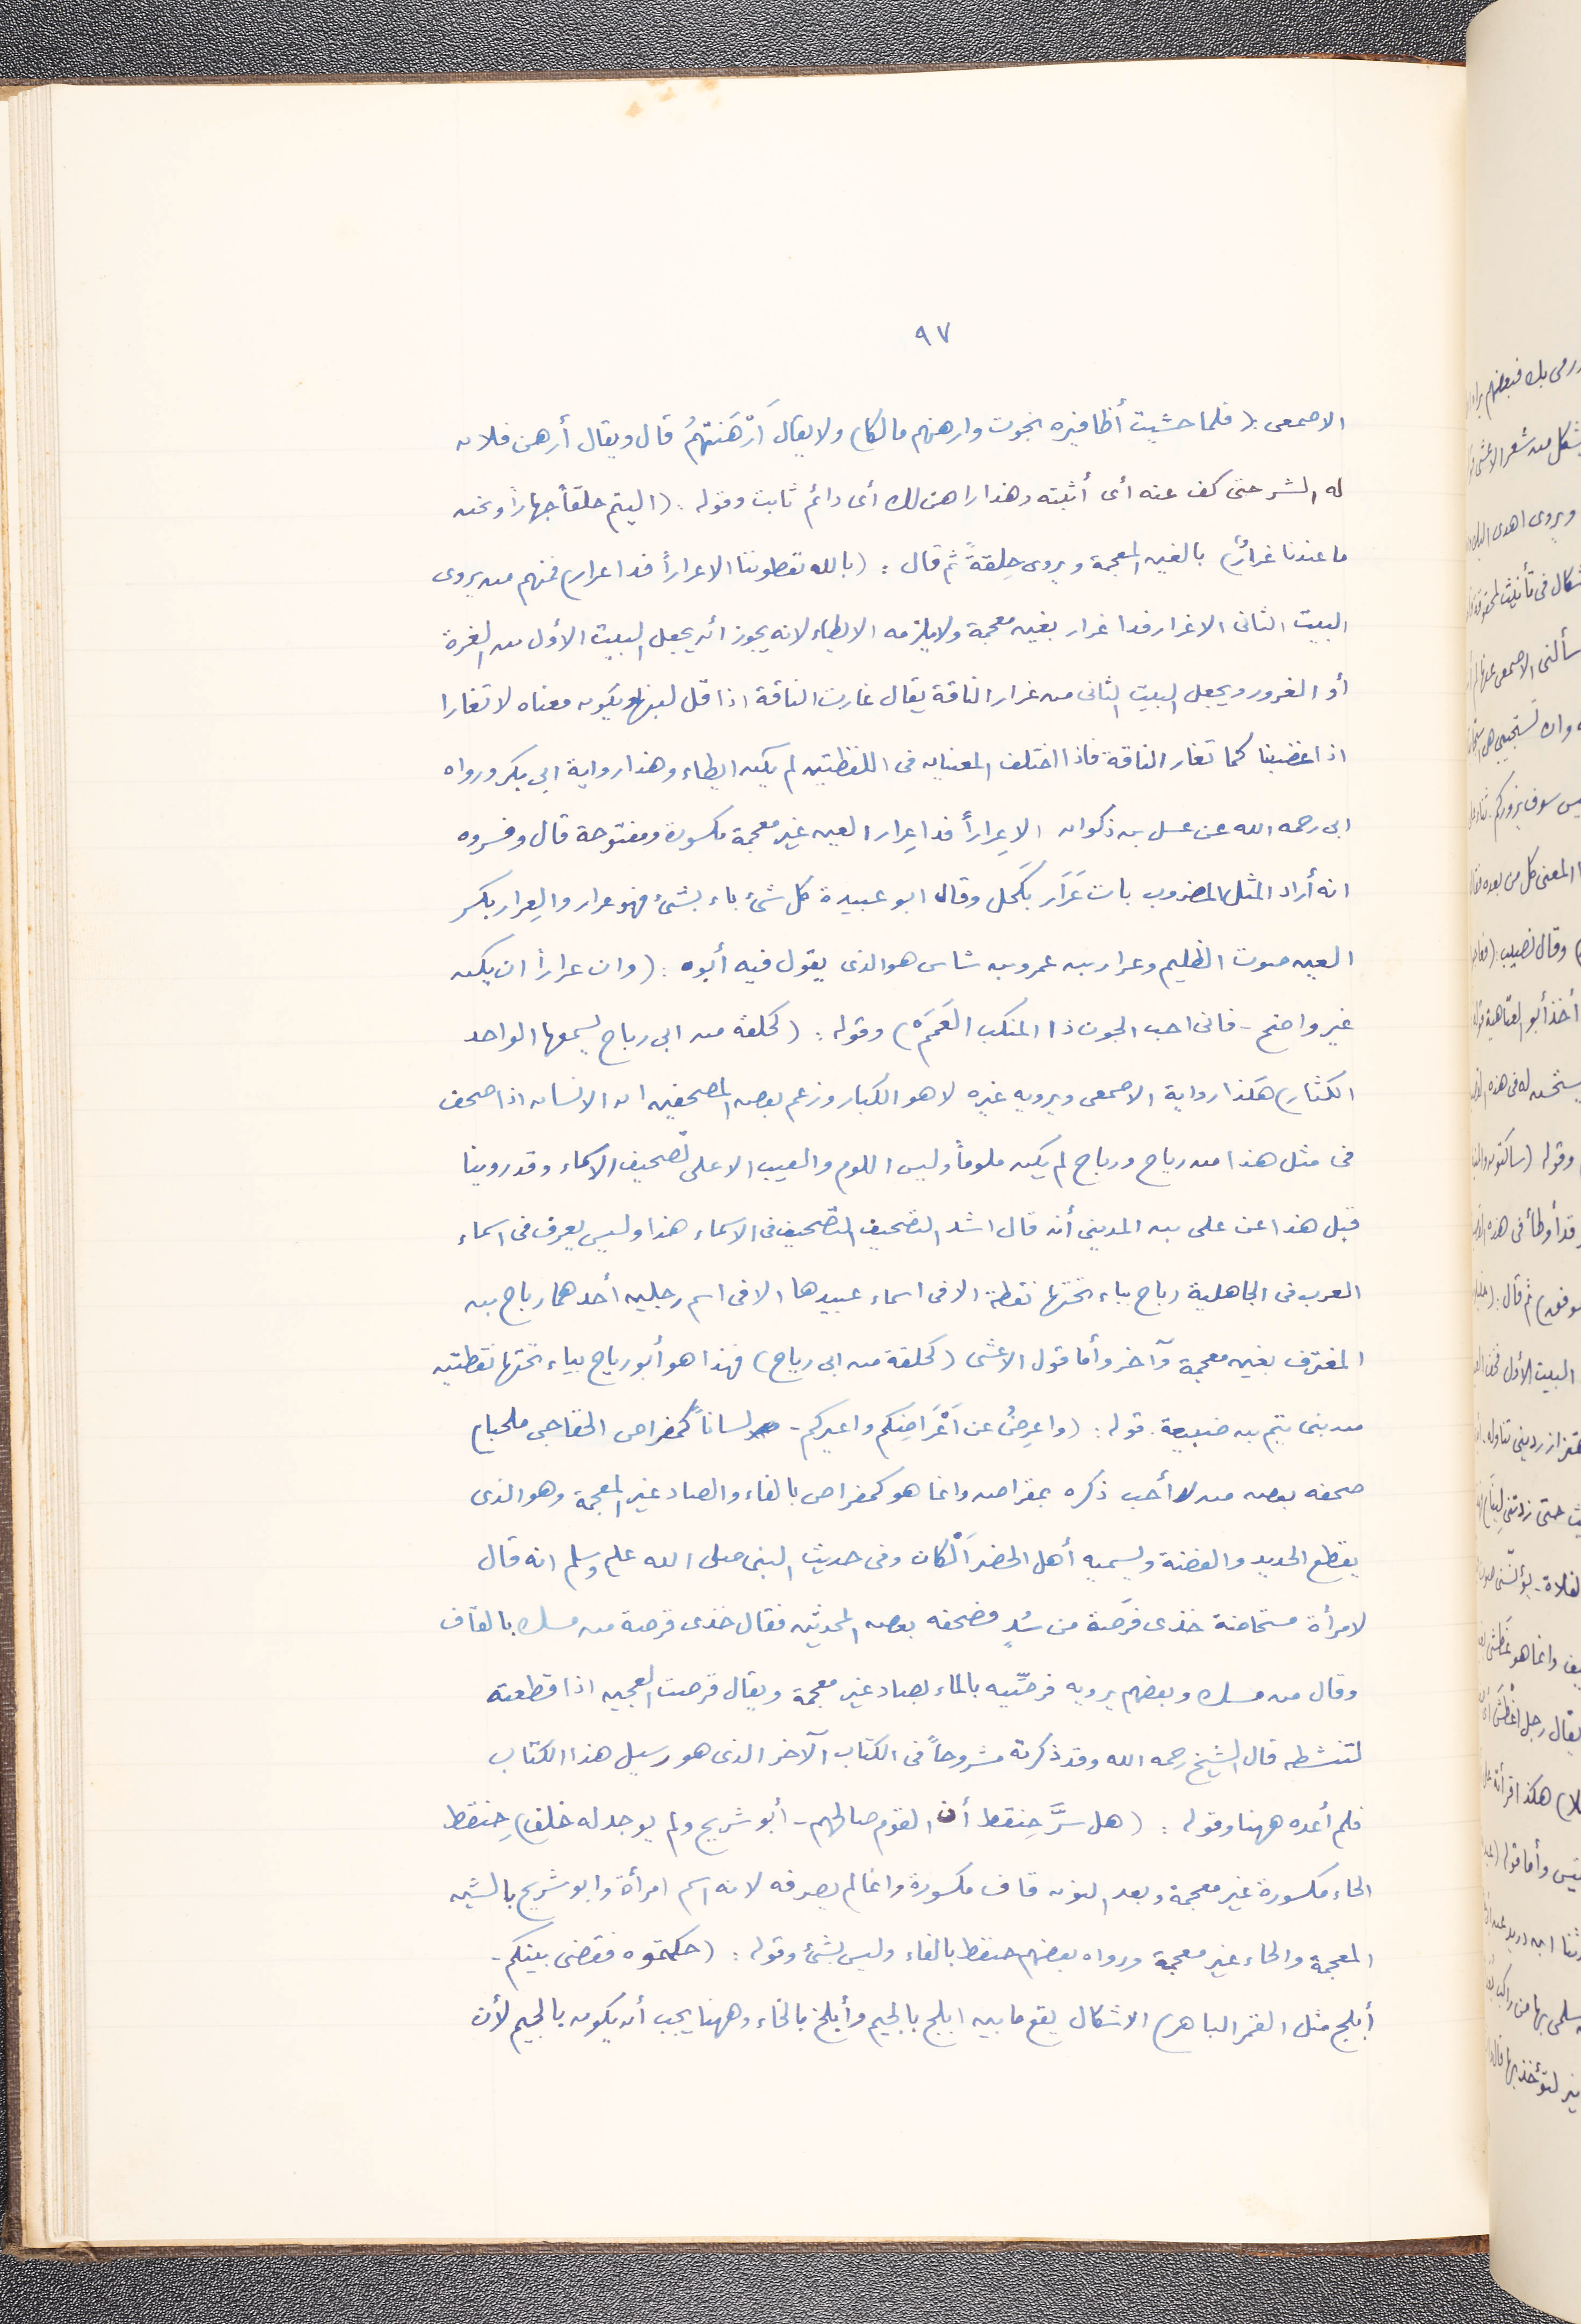 ٩٧
الاصمعى: (فلما حشيت أظافيره نجوت وارهنهم مالكا) ولا يقال أَرْهَنتهُمُ قال ويقال أرهن فلان
له الشر حتى كف عنه أى أثبته وهذا راهن لك أى دائم ثابت وقوله: (اليتم حلقاً جهاراً ونحن
ما عندنا غرارُ) بالغين المعجمة ويروى حِلفةً ثم قال: (بالله تعطوننا الاعراراً فدا عرار) فمنهم من يروى
البيت الثانى الاغرار فدا غرار بغين معجمة ولا يلزمه الايطاء لانه يجوز أن يجعل البيت الأول من الغرة
أو الغرور ويجعل البيت الثانى من غرار الناقة يقال غارت الناقة اذا قل لبنها ويكون معناه لا تغارا
اذا غضبنا كما تغار الناقة فاذا اختلف المعنيان فى اللفظتين لم يكن ايطاء وهذا رواية ابي بكر ورواه
ابى رحمه الله عن عسل بن ذكوان الا عِراراً فدا عِرار العين غير معجمة مكسورة ومفتوحة قال وفسروه
انه أراد المثل المضروب باءت عَرَار بكَحل وقال ابو عبيدة كل شئ باء بشئ فهو عرار والعِرار بكسر
العين صوت الظليم وعرار بن عمرو بن شاس هو الذى يقول فيه أبوه: (وان عراراً ان يكن
غير واضح - فانى احب الجون ذا المنكب العَمَمْ) وقوله: (كحلفة من ابى رباح يسمعها الواحد
الكثار) هكذا رواية الاصمعى ويرويه غيره لاهو الكبار وزعم بعض المصحفين ان الانسان اذا صحف
فى مثل هذا من رياح ورباح لم يكن ملوماً وليس اللوم والعيب الا على تصحيف الاسماء وقد روينا
قبل هذا عن على بن المدينى أنه قال اشد التصحيف التصحيف فى الاسماء هذا وليس يعرف فى اسماء
العرب فى الجاهلية رباح بباء تحتها نقطة الا فى اسماء عبيدها الا فى اسم رجلين أحدهما رباح بن
المغترف بغين معجمة وآخر وأما قول الاعشى (كحلفة من ابى رياح) فهذا هو أبو رياح بياء تحتها نقطتين
من بنى تيم بن ضبيعة. قوله: (واعرضُ عن اَعْرَاضِكم واعيركم - لساناً كمفراص الخفاجى ملحبا)
صحفه بعض من لا أحب ذكره بمقراض وانما هو كمفراص بالفاء والصاد غير المعجمة وهو الذى
يقطع الحديد والفضة ويسميه أهل الحضر اَلْكان وفى حديث النبى صلى الله عليه وسلم انه قال
لامرأة مستحاضة خذى فرصَة من سُدٍ فصحفه بعض المحدثين فقال خذى قرصة من مسك بالقاف
وقال من مسك وبعضهم يرويه قرصِّيه بالماء بصاد غير معجمة ويقال قرصت العجين اذا قطعته
لتنشطه قال الشيخ رحمه الله وقد ذكرته مشروحاً فى الكتاب الآخر الذى هو رسيل هذا الكتاب
فلم أعده ههنا وقوله: (هل سَرَّ حِنقط أن القوم صالحهم - أبو شريح ولم يوجد له خلف) حِنقط
الحاء مكسورة غير معجمة وبعد النون قاف مكسورة وانما لم يصرفه لانه اسم امرأة وابو شريح بالشين
المعجمة والحاء غير معجمة ورواه بعضهم حنفط بالفاء وليس بشئ وقوله: (حكمتموه فقضى بينكم -
أبلج مثل القمر الباهر) الاشكال يقع ما بين ابلج بالجيم وأبلخ بالخاء وههنا يجب أن يكون بالجيم لأن